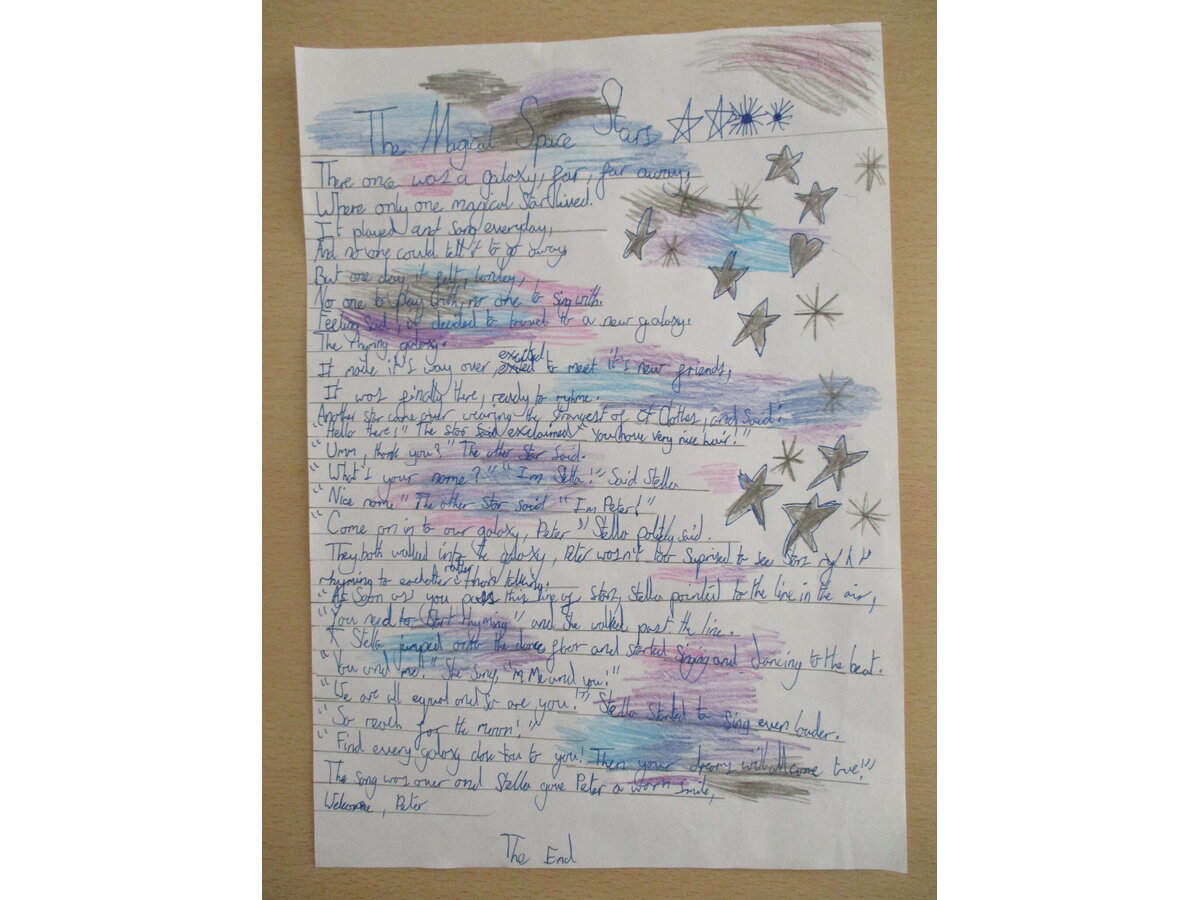 The Magical Space Stars
There once was a galaxy, far, far away,
Where only one magical star lived.
It played and sang everyday,
And no one could tell it to go away.
But one day it felt lonley,
No one to play with, no one to sing with.
Feeling sad, it decided to travel to a new galaxy.
The rhyming galaxy.
It made it's way over, excited to meet it's new friends,
It was finally there, ready to ryhme.
Another star came over wearing the strangest of clothes, and said:
"Hello there!" The star said exclaimed "You have very nice hair!"
"Umm, thank you?" The other star said.
"What's your name?" "I'm Stella!" Said Stella
"Nice name" The other star said "I'm Peter!"
"Come on in to our galaxy, Peter" Stella politely said.
They both walked into the galaxy, Peter wasn't too suprised to see stars
rhyming to eachother rather than talking.
"As soon as you pass this line of stars, Stella pointed to the line in the air,
"You need to start rhyming" and she walked past the line.
Stella jumped onto the dance floor and started singing and dancing to the beat.
"You and me!" She sang, "Me and you!"
"We are all equal and so are you!" Stella started to sing even louder.
"So reach for the moon!"
"Find every galaxy close to you! Then your dreams will all come true!"
The song was over and Stella gave Peter a warm smile,
Welcome, Peter
The End